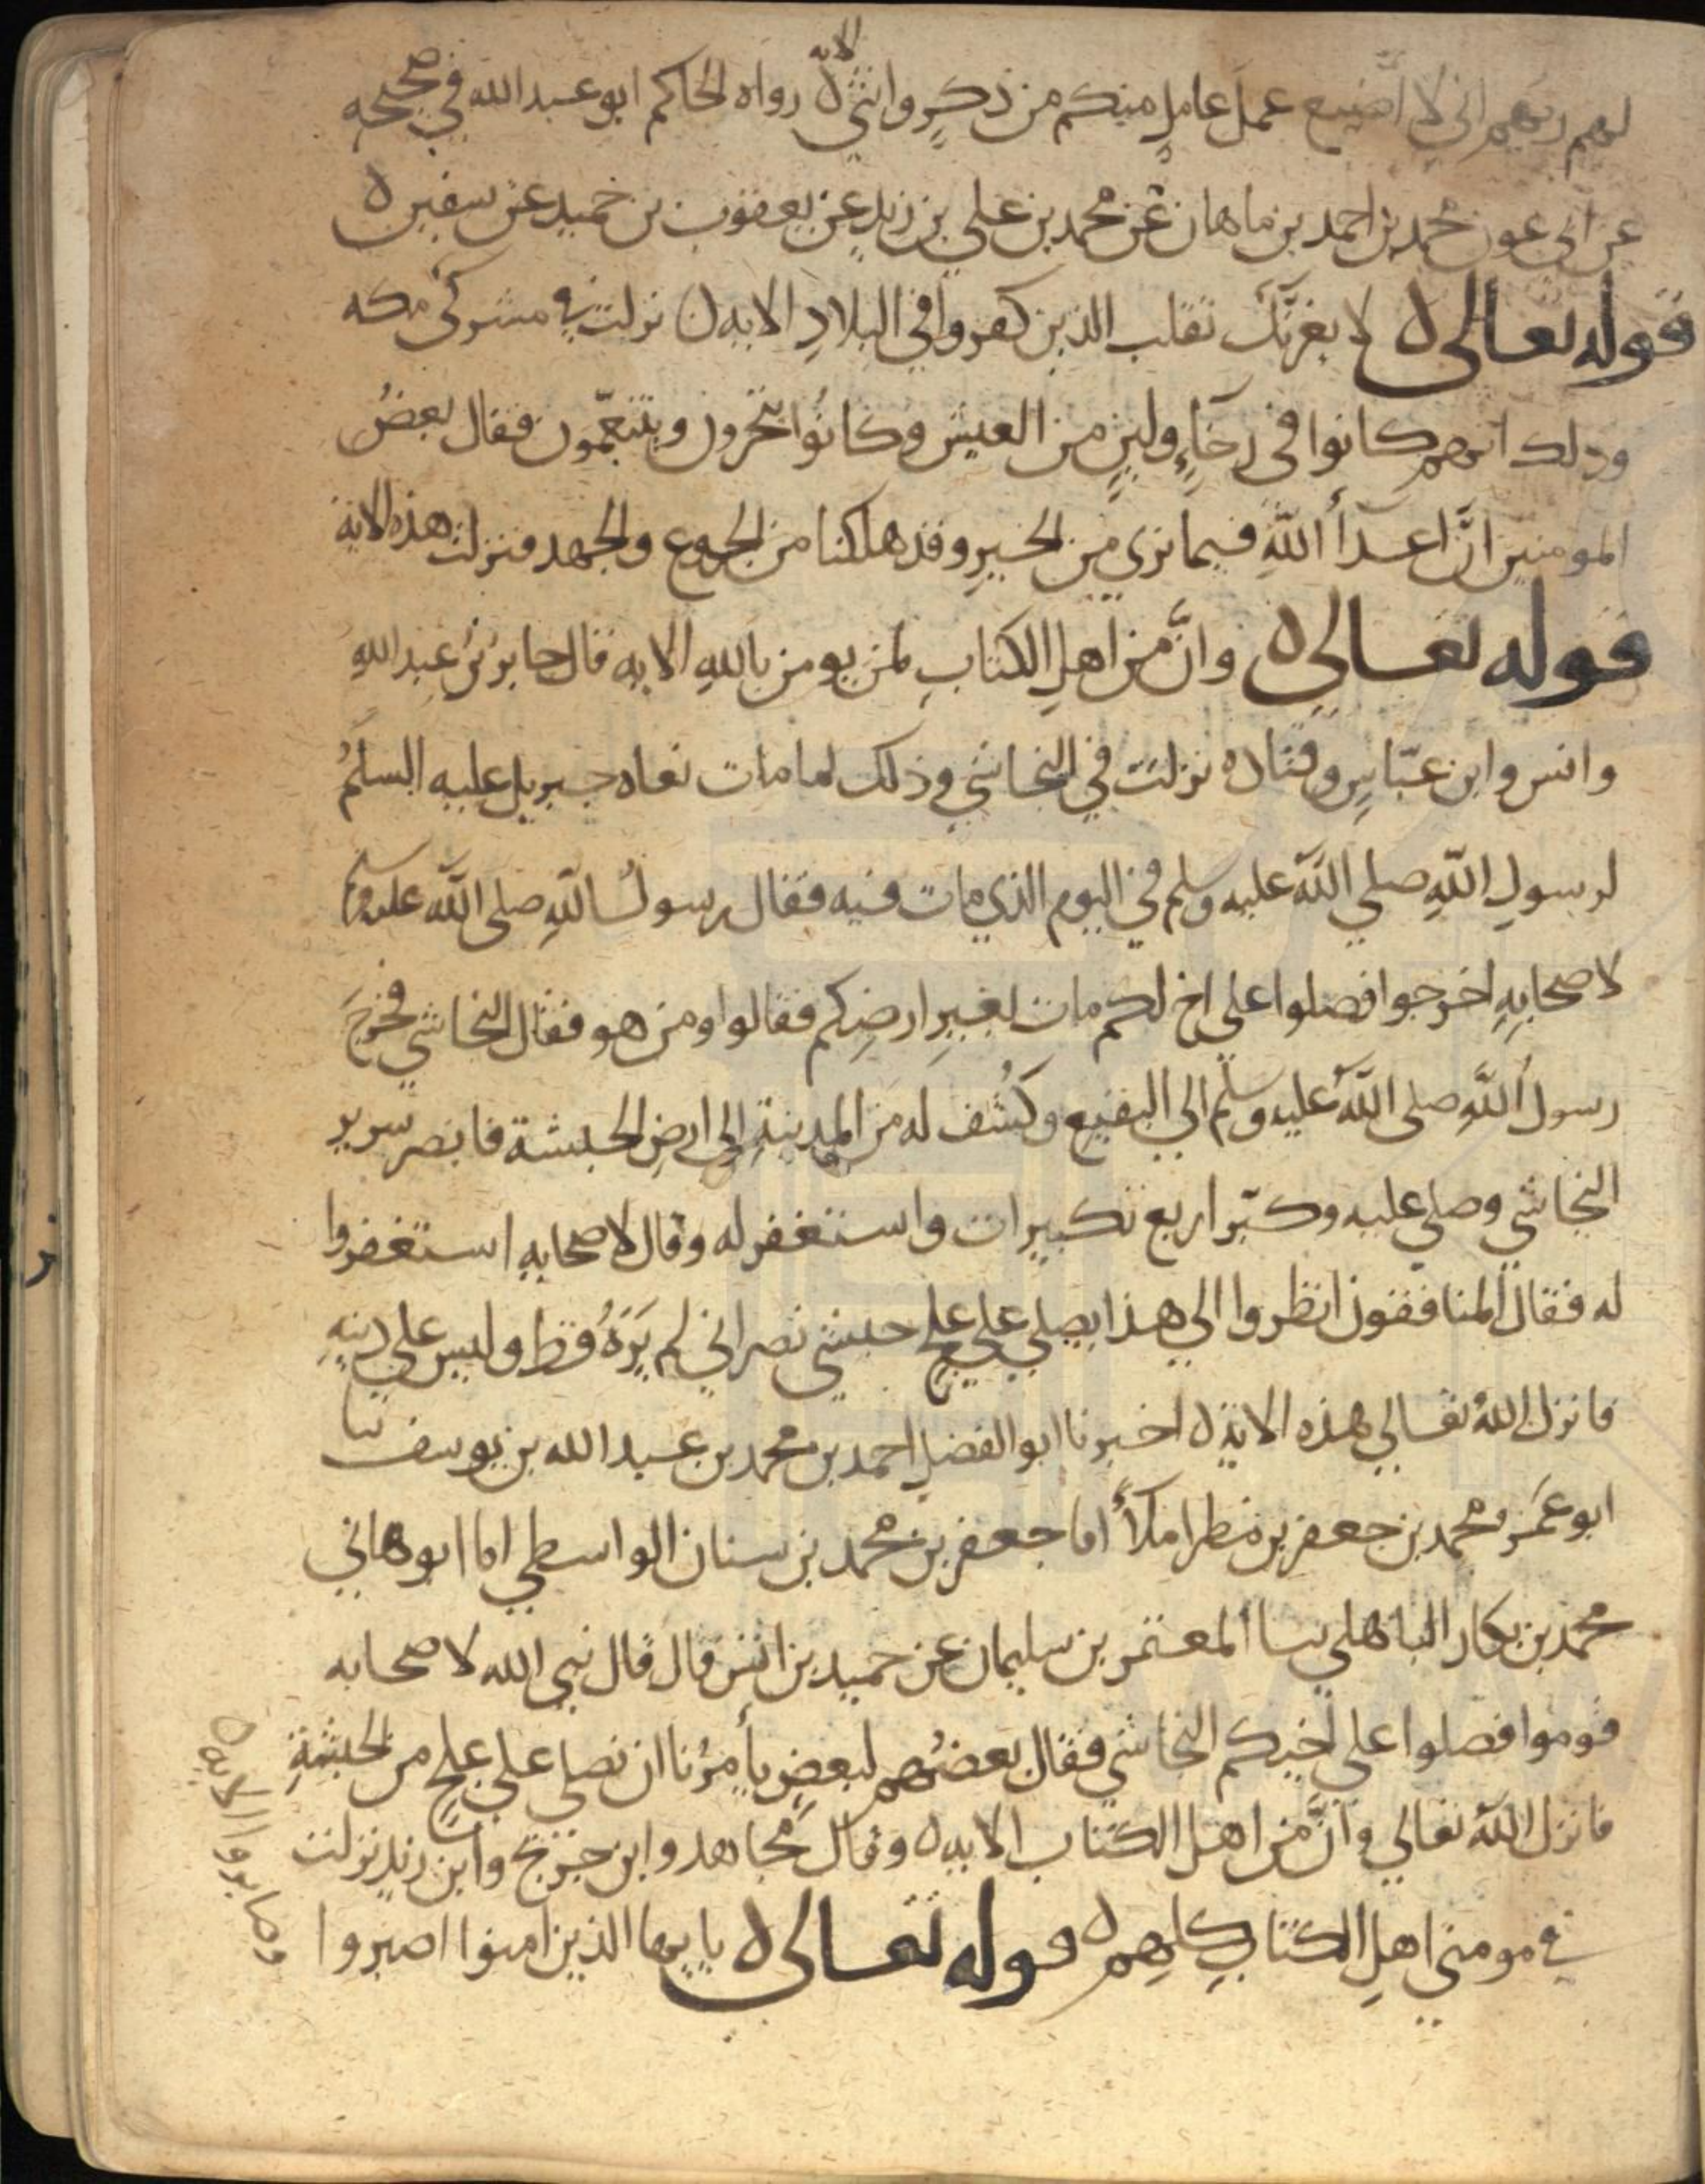 لهم ربهم اني لا اضيع عمل عامل منكم من ذكر وانثى الايه رواه الحاكم ابو عبد الله في صحيحه
عن ابي عون محمد بن احمد بن ماهان عن محمد بن علي بن زيد عن يعقوب بن حميد عن سفين ه
قوله تعالى ه لا يغرنك تقلب الذين كفروا في البلاد الايه ن نزلت في مشركي مكه
وذلك انهم كانوا في رخاء ولين من العيش وكانوا يتجرون ويتنعمون فقال بعض
المومنين ان اعدأ الله فيما نرى من الخير وقد هلكنا من الجوع والجهد فنزلت هذه الاية
قوله تعالى ه وانّ من اهل الكتاب لمن يومن بالله الايه قال جابر بن عبد الله
وانس وابن عبّاس وقتاده نزلت في النجاشي وذلك لما مات نعاه جبريل عليه السلم
لرسول الله صلي الله عليه وسلم في اليوم الذي مات فيه فقال رسول الله صلى الله عليه وسلم
لاصحابه اخرجوا فصلوا على اخ لكم مات بغير ارضكم فقالوا ومن هو فقال النجاشي فخرج
رسول الله صلى الله عليه وسلم الي البقيع وكُشف له من المدينة الى ارض الحبشة فابصر سرير
النجاشي وصلى عليه وكبّر اربع تكبيرات واستغفر له وقال لاصحابه استغفروا
له فقال المنافقون انظروا الي هذا يصلي على علج حبشي نصراني لم يَرَهُ قط وليس على دينه
فانزل الله تعالي هذه الاية ه اخبرنا ابو الفضل احمد بن محمد بن عبد الله بن يوسف ثنا
ابو عمرو محمد بن جعفر بن مطر املاً انا جعفر بن محمد بن سنان الواسطي انا ابو هاني
محمد بن بكار الباهلي ثنا المعتمر بن سليمان عن حميد بن انس قال قال نبي الله لاصحابه
قوموا فصلوا على اخيكم النجاشي فقال بعضهم لبعض يأمرنا ان نصلي على علج من الحبشة
فانزل الله تعالي وانّ من اهل الكتاب الايه ه وقال مجاهد وابن جريج وابن زيد نزلت
في مومني اهل الكتاب كلهم ه قوله تعالى ه يا ايها الذين امنوا اصبروا
وصابروا الايه ه